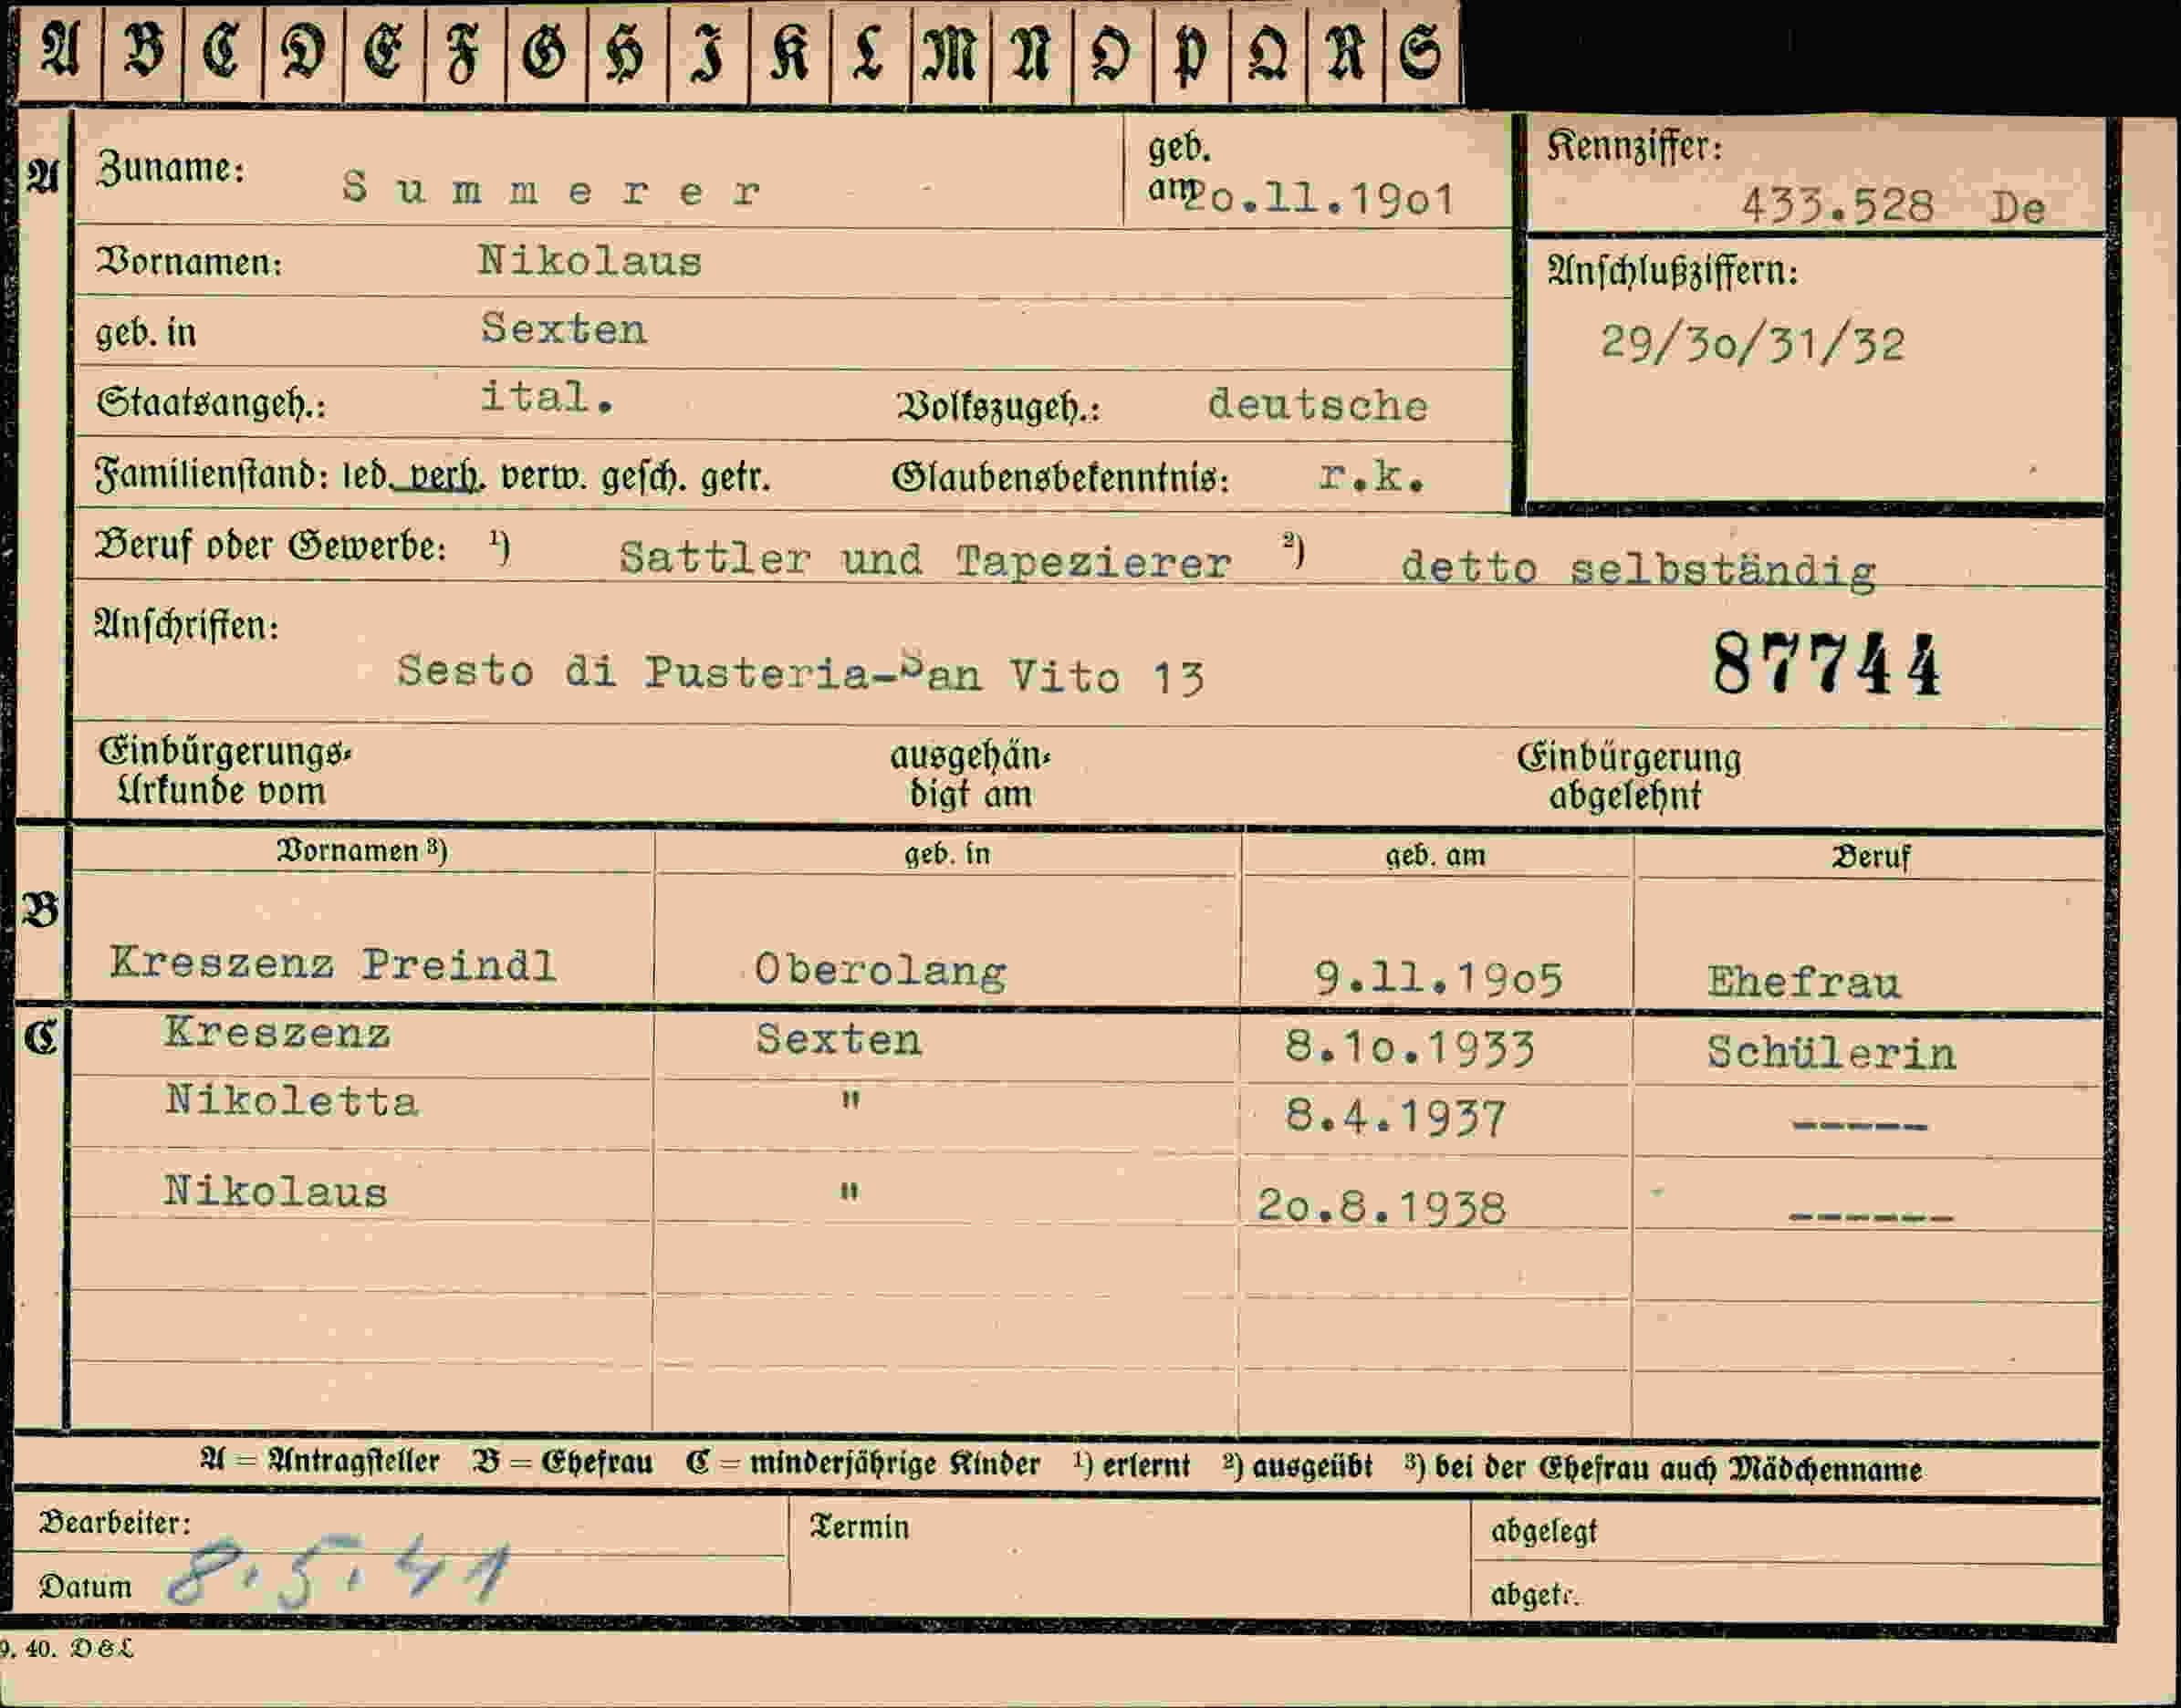 A B C D E F G H I K L M N O P Q R S
A Zuname: Summerer geb. am 20.11.1901 Kennziffer: 433.528 De
Vornamen: Nikolaus Anschlußziffern:
geb. in Sexten 29/30/31/32
Staatsangeh.: ital. Volkszugeh.: deutsche
Familienstand: led. verh. verw. gesch. getr. Glaubensbekenntnis: r.k.
Beruf oder Gewerbe: ¹) Sattler und Tapezierer ²) detto selbständig
Anschriften:
Sesto di Pusteria-San Vito 13 87744
Einbürgerungs- ausgehän- Einbürgerung
Urkunde vom digt am abgelehnt
Vornamen ³) geb. in geb. am Beruf
B
Kreszenz Preindl Oberolang 9.11.1905 Ehefrau
C Kreszenz Sexten 8.10.1933 Schülerin
Nikoletta " 8.4.1937 -----
Nikolaus " 20.8.1938 ------
A = Antragsteller B = Ehefrau C = minderjährige Kinder ¹) erlernt ²) ausgeübt ³) bei der Ehefrau auch Mädchenname
Bearbeiter: Termin abgelegt
Datum 8.5.41 abgetr.
9. 40. D&L